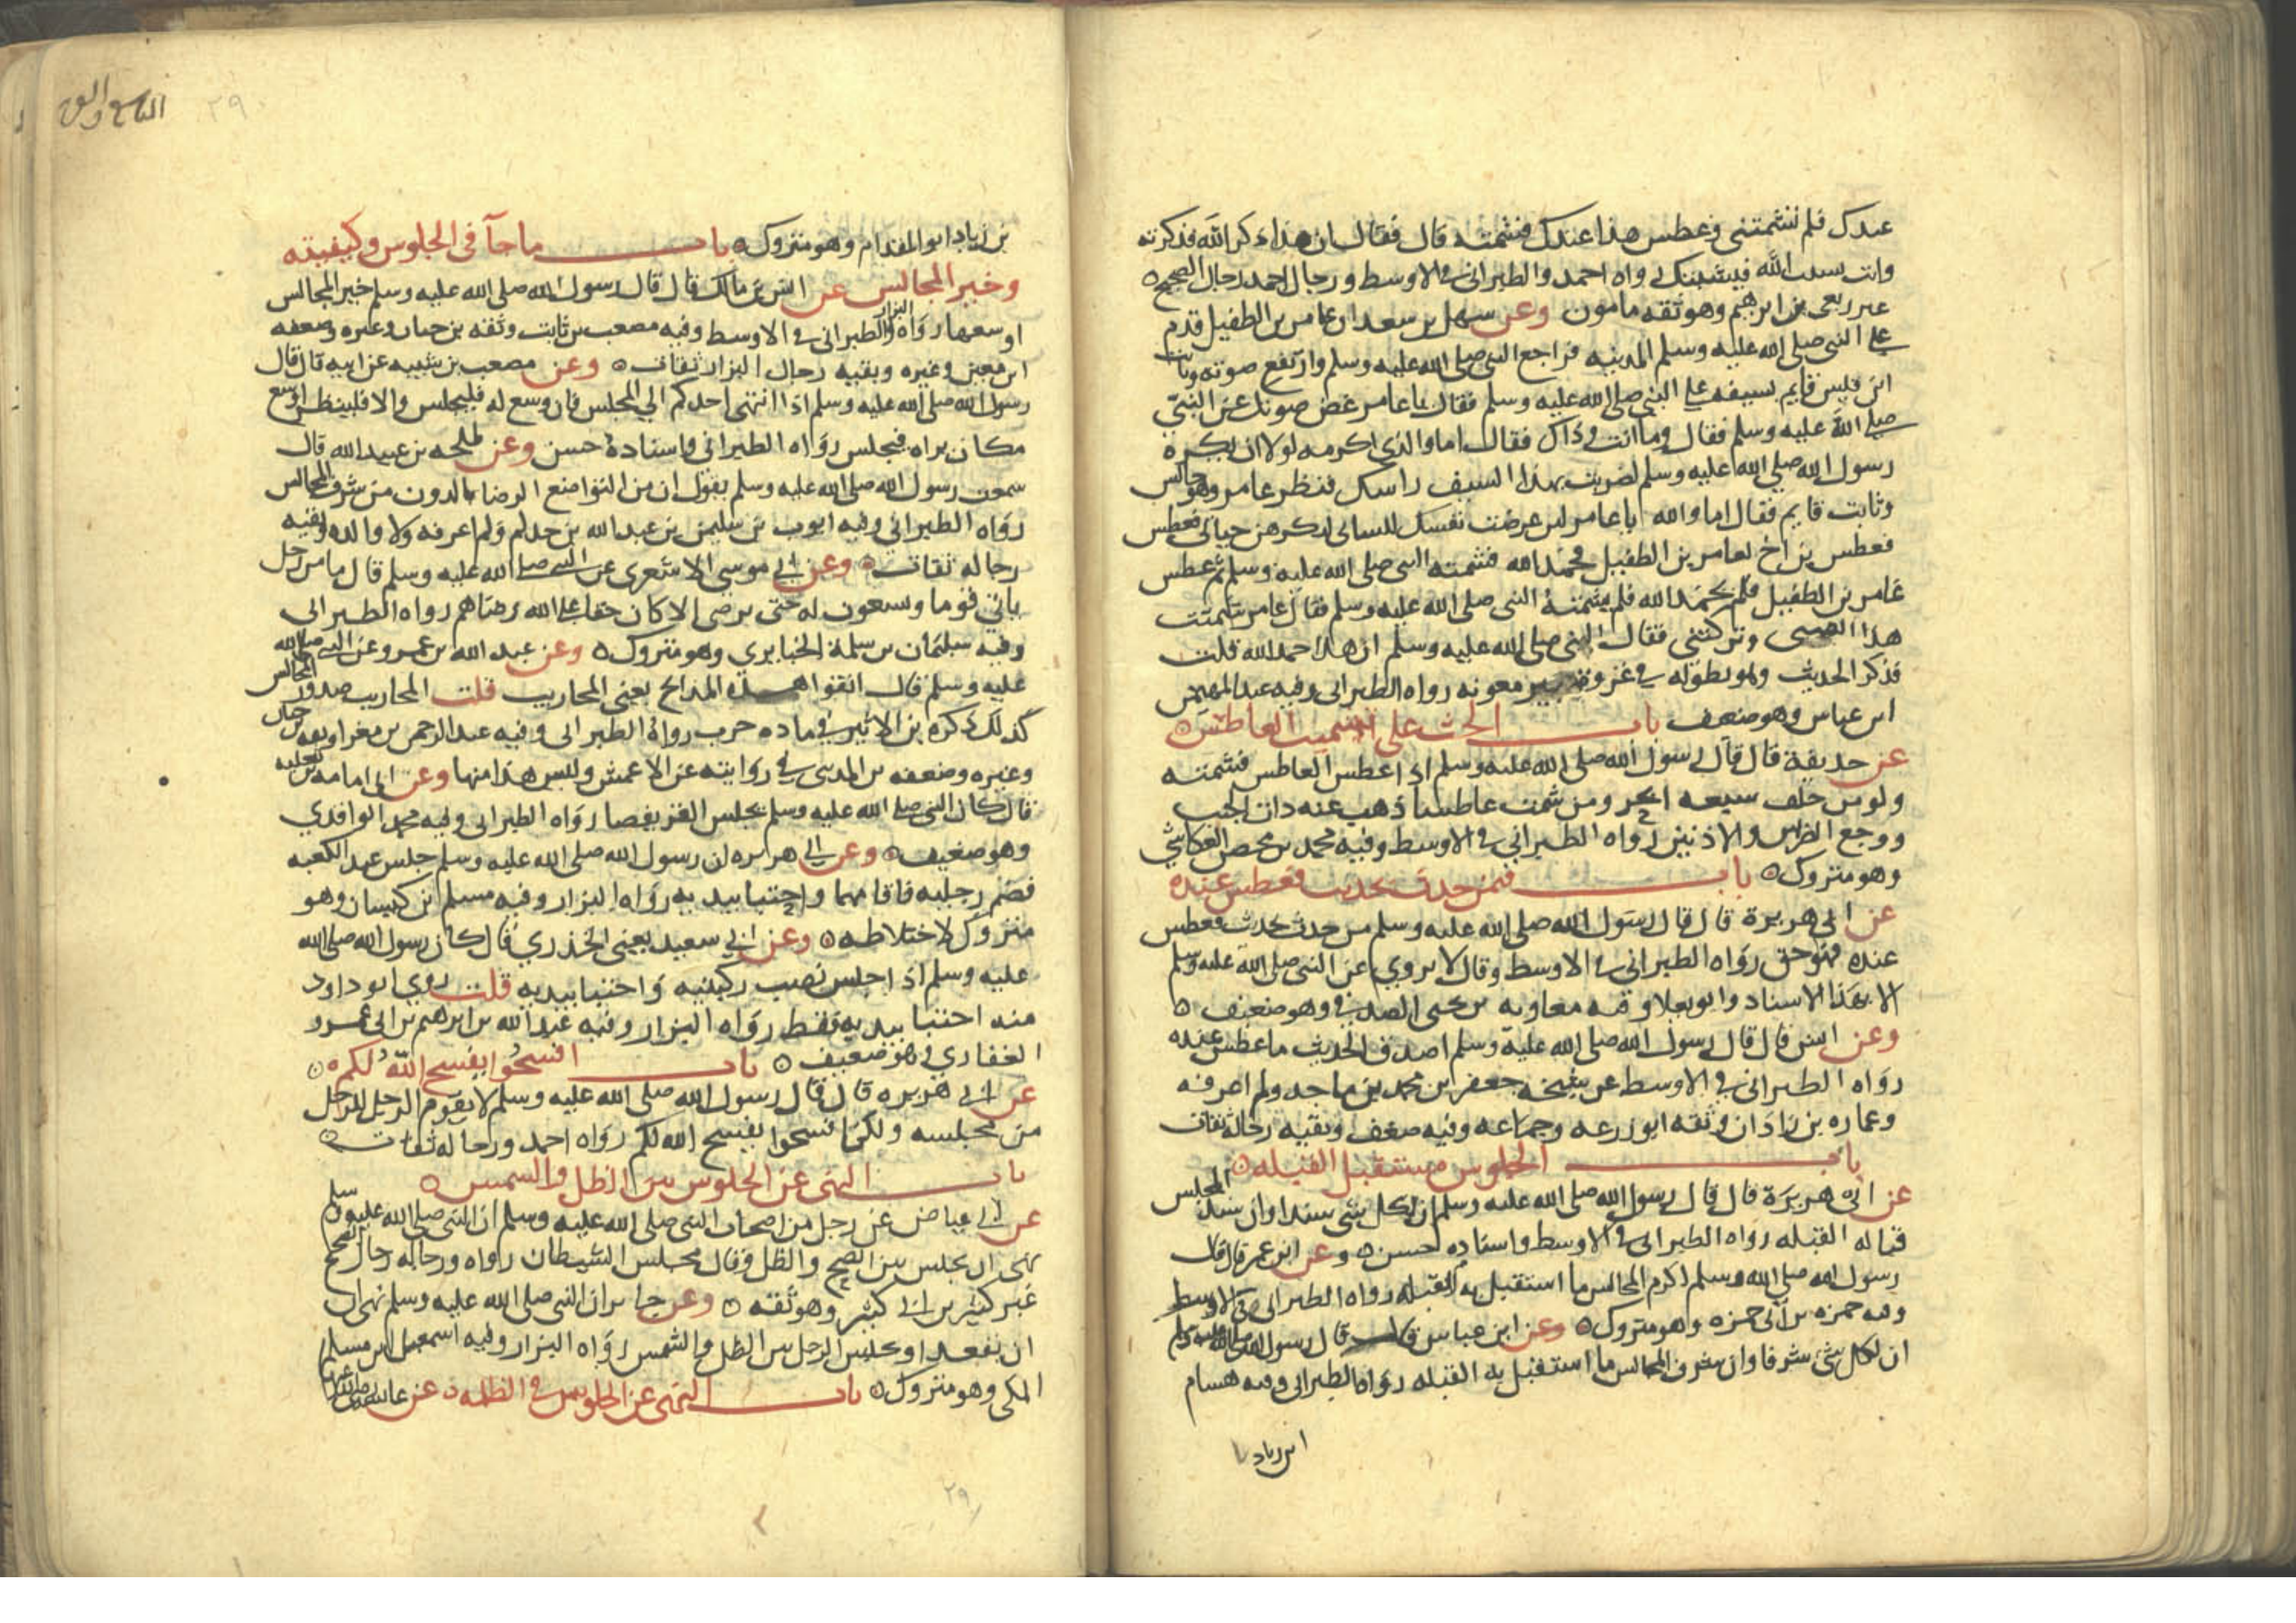 عندك فلم تشمتني وعطس هذا عندك فشمته قال فقال ان هذا ذكر الله فذكرته
وانت نسيت الله فنسيتك رواه احمد والطبراني في الاوسط ورجال احمد رجال الصحيح
غير ربعي بن ابرهيم وهو ثقه مامون وعن سهل بن سعد ان عامر بن الطفيل قدم
على النبي صلى الله عليه وسلم المدينه فراجع النبي صلى الله عليه وسلم وارتفع صوته وثابت
ابن قيس قايم بسيفه على النبي صلى الله عليه وسلم فقال يا عامر غض صوتك عن النبي
صلى الله عليه وسلم فقال وما انت وذاك فقال اما والذي اكرمه لولا ان يكره
رسول الله صلى الله عليه وسلم لضربت بهذا السيف راسك فنظر عامر وهو جالس
وثابت قايم فقال اما والله يا عامر لين عرضت نفسك للساني لتكرهن حياتي فعطس
فعطس بن اخ لعامر بن الطفيل فحمد الله فشمته النبي صلى الله عليه وسلم ثم عطس
عامر بن الطفيل فلم يحمد الله فلم يشمته النبي صلى الله عليه وسلم فقال عامر شمتت
هذا الصبي وتركتني فقال النبي صلى الله عليه وسلم ان هذا حمد الله قلت
فذكر الحديث وهو بطوله في غزوة بير معونه رواه الطبراني وفيه عبد المهيمن
ابن عباس وهو ضعيف باب الحث على تشميت العاطس
عن حذيفة قال قال رسول الله صلى الله عليه وسلم اذا عطس العاطس فشمته
ولو من خلف سبعه ابحر ومن شمت عاطسا ذهب عنه ذات الجنب
ووجع الضرس والاذنين رواه الطبراني في الاوسط وفيه محمد بن محصن العكاشي
وهو متروك باب فيمن حدث بحديث فعطس عنده
عن ابي هريرة قال قال رسول الله صلى الله عليه وسلم من حدث بحديث فعطس
عنده فهو حق رواه الطبراني في الاوسط وقال لا يروي عن النبي صلى الله عليه وسلم
الا بهذا الاسناد وابو يعلا وفيه معاويه بن يحيى الصدفي وهو ضعيف
وعن انس قال قال رسول الله صلى الله عليه وسلم اصدق الحديث ما عطس عنده
رواه الطبراني في الاوسط عن شيخه جعفر بن محمد بن ماجد ولم اعرفه
وعماره بن زاذان وثقه ابو زرعه وجماعه وفيه ضعف وبقيه رجاله ثقات
باب الجلوس مستقبل القبله
عن ابي هريرة قال قال رسول الله صلى الله عليه وسلم ان لكل شي سيدا وان سيد المجلس
قباله القبله رواه الطبراني في الاوسط واسناده حسن وعن ابن عمر قال قال
رسول الله صلى الله وسلم اكرم المجالس ما استقبل به القبله رواه الطبراني في الاوسط
وفيه حمزه بن ابي حمزه وهو متروك وعن ابن عباس قال قال رسول الله صلى الله عليه وسلم
ان لكل شي شرفا وان شرف المجالس ما استقبل به القبله رواه الطبراني وفيه هشام
ابن زياد
٢٩
بن زياد ابو المقدام وهو متروك باب ما جآ في الجلوس وكيفيته
وخير المجالس عن انس بن مالك قال قال رسول الله صلى الله عليه وسلم خير المجالس
اوسعها رواه البزار والطبراني في الاوسط وفيه مصعب بن ثابت وثقه بن حبان وغيره وضعفه
ابن معين وغيره وبقيه رجال البزار ثقات وعن مصعب بن شيبه عن ابيه قال قال
رسول الله صلى الله عليه وسلم اذا انتهى احدكم الي المجلس فان وسع له فليجلس والا فلينظر اوسع
مكان يراه فيجلس رواه الطبراني واسناده حسن وعن طلحه بن عبيد الله قال
سمعت رسول الله صلى الله عليه وسلم يقول ان من التواضع الرضا بالدون من شرف المجالس
رواه الطبراني وفيه ايوب بن سليمن بن عبد الله بن حدلم ولم اعرفه ولا والده وبقيه
رجاله ثقات وعن ابي موسى الاشعري عن النبي صلى الله عليه وسلم قال ما من رجل
ياتي قوما ويسعون له حتى يرضى الا كان حقا على الله رضاهم رواه الطبراني
وفيه سليمان بن سلمة الخبايري وهو متروك وعن عبد الله بن عمرو عن النبي صلى الله
عليه وسلم قال اتقوا هذه المذابح يعني المحاريب قلت المحاريب صدور المجالس
كذلك ذكره بن الاثير في ماده حرب رواه الطبراني وفيه عبد الرحمن بن مغرا وثقه بن حبان
وغيره وضعفه بن المديني في روايته عن الاعمش وليس هذا منها وعن ابي امامه بن ثعلبه
قال كان النبي صلى الله عليه وسلم يجلس القرفصا رواه الطبراني وفيه محمد الواقدي
وهو ضعيف وعن ابي هريره ان رسول الله صلى الله عليه وسلم جلس عند الكعبه
فضم رجليه فاقامهما واحتبا بيديه رواه البزار وفيه مسلم بن كيسان وهو
متروك لاختلاطه وعن ابي سعيد يعني الخدري قال كان رسول الله صلى الله
عليه وسلم اذا جلس نصب ركبتيه واحتبا بيديه قلت روي ابو داود
منه احتبا بيديه فقط رواه البزار وفيه عبد الله بن ابرهيم بن ابي عمرو
الغفاري وهو ضعيف باب افسحوا يفسح الله لكم
عن ابي هريره قال قال رسول الله صلى الله عليه وسلم لا يقوم الرجل للرجل
من مجلسه ولكن افسحوا يفسح الله لكم رواه احمد ورجاله ثقات
باب النهى عن الجلوس بين الظل والشمس
عن ابي عياض عن رجل من اصحاب النبي صلى الله عليه وسلم ان النبي صلى الله عليه وسلم
نهى ان يجلس بين الضح والظل وقال مجلس الشيطان رواه ورجاله رجال الصحيح
غير كثير بن ابي كثير وهو ثقه وعن جابر ان النبي صلى الله عليه وسلم نهى ان
ان يقعد او يجلس الرجل بين الظل والشمس رواه البزار وفيه اسمعيل ابن مسلم
المكي وهو متروك باب النهى عن الجلوس في الظلمه عن عائشه رضي الله عنها
٢٩